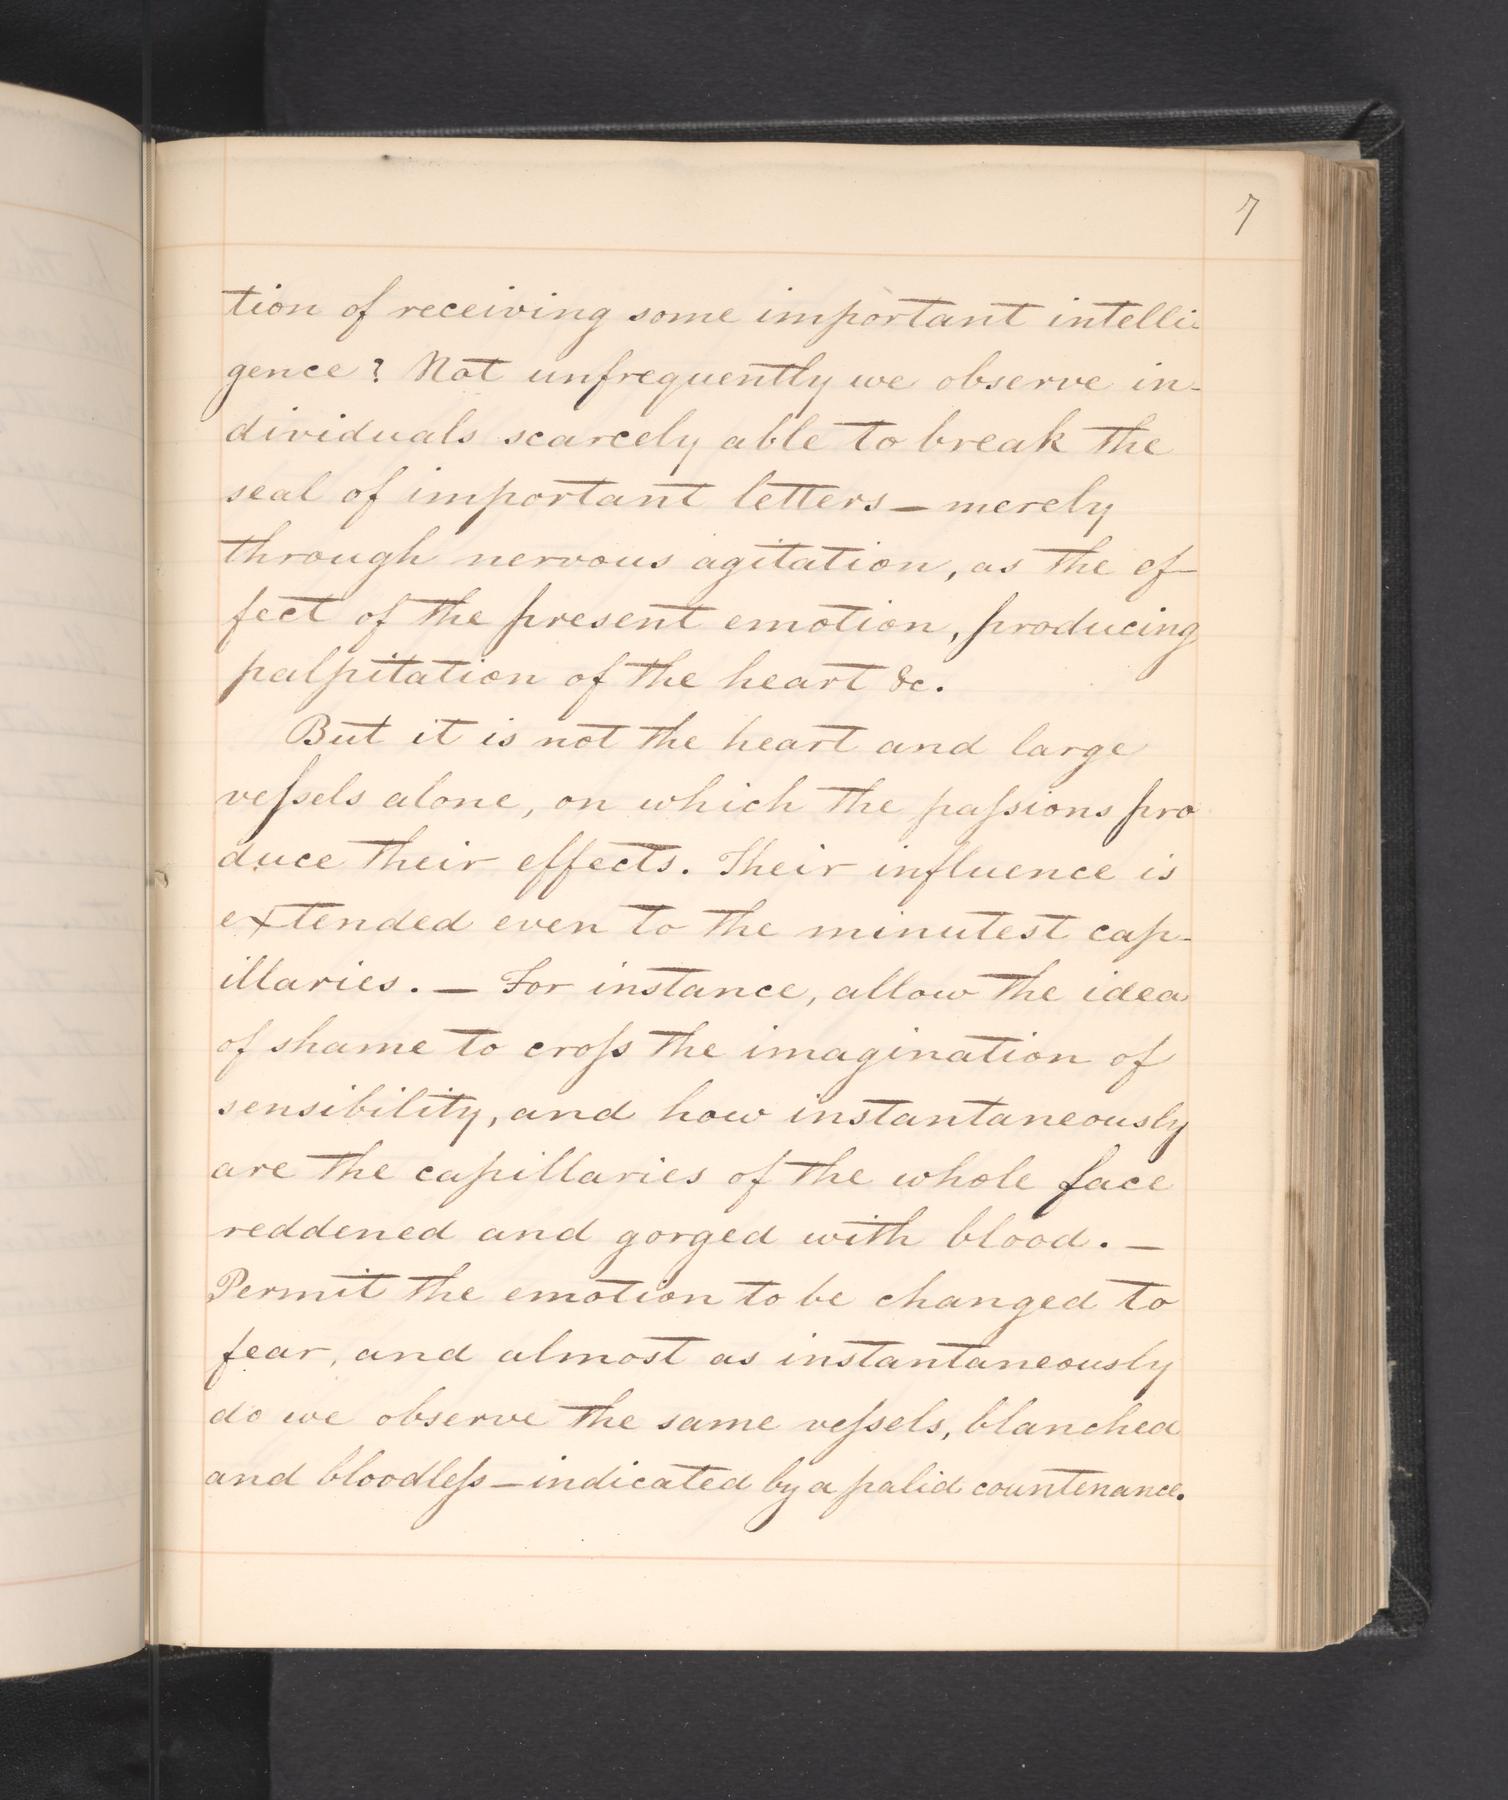 7
tion of receiving some important intelli-
gence? Not unfrequently we observe in-
dividuals scarcely able to break the
seal of important letters — merely
through nervous agitation, as the ef-
fect of the present emotion, producing
palpitation of the heart &c.
But it is not the heart and large
veſsels alone, on which the paſsions pro
duce their effects. Their influence is
extended even to the minutest cap-
illaries. — For instance, allow the idea
of shame to croſs the imagination of
sensibility, and how instantaneously
are the capillaries of the whole face
reddened and gorged with blood. —
Permit the emotion to be changed to
fear, and almost as instantaneously
do we observe the same veſsels, blanched
and bloodleſs — indicated by a palid countenance.